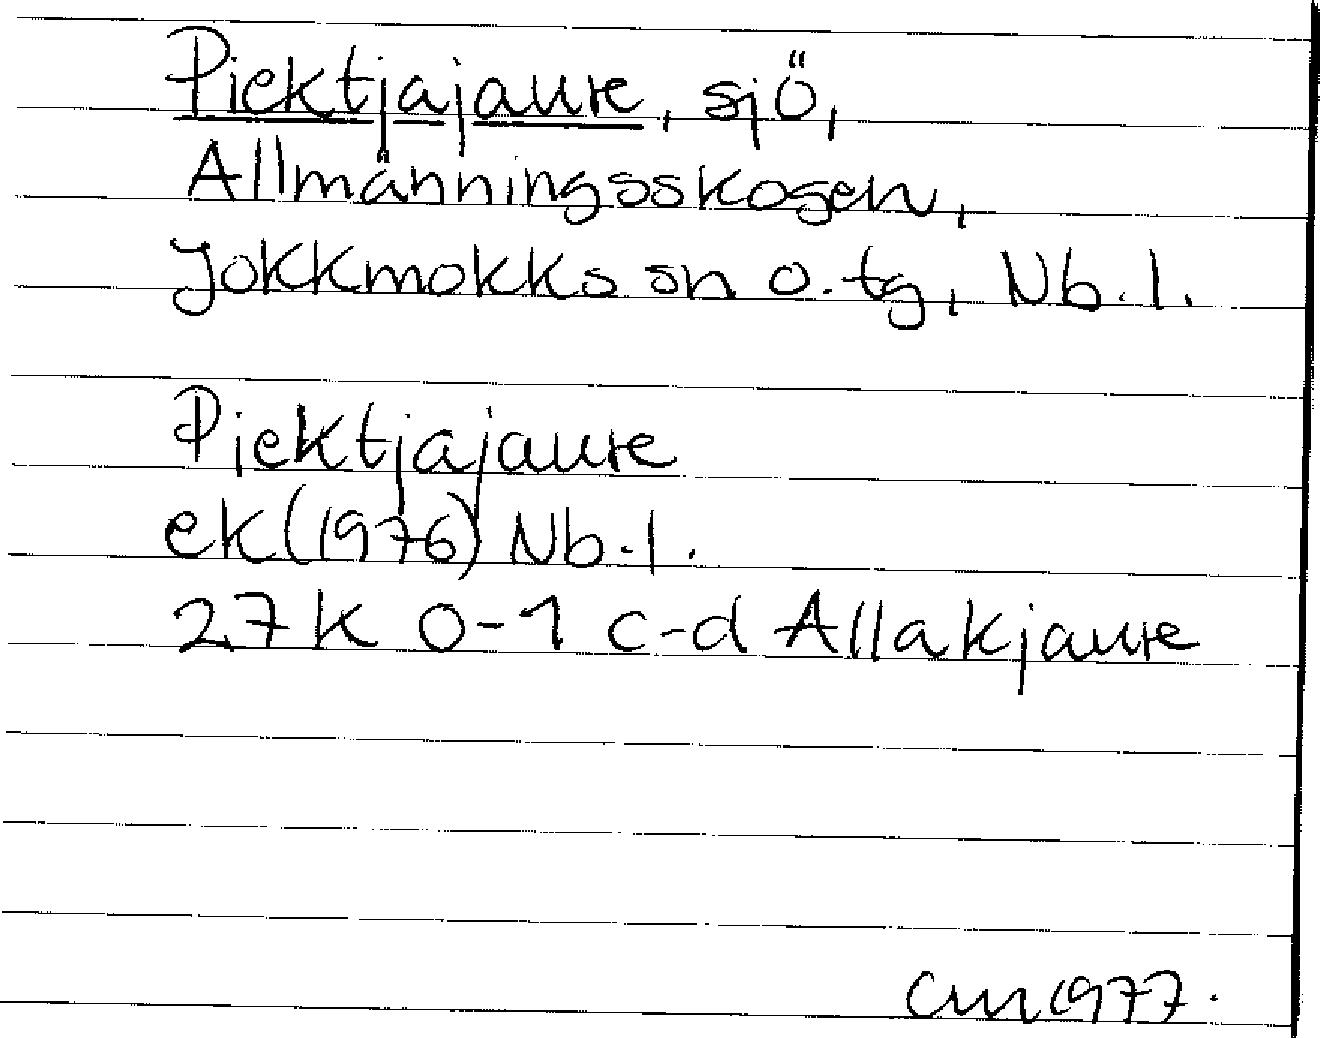 Piektjajaure, sjö,
Allmänningsskogen,
Jokkmokks sn o. tg, Nb. l.
Piektjajaure
ek (1976) Nb. l.
27 K 0-1 c-d Allakjaure
CM 1977.